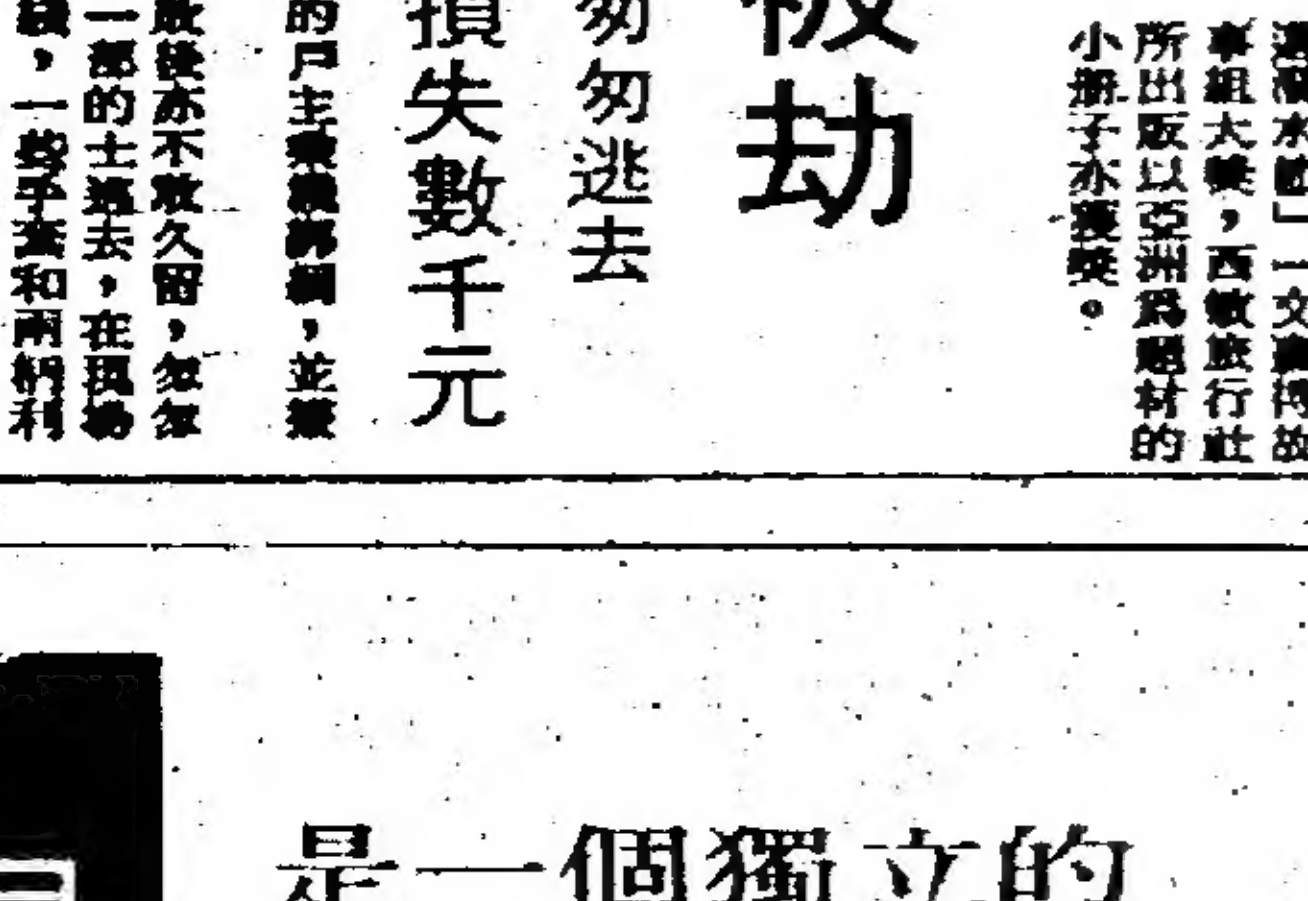 一文贏得故
事組大獎，西敏旅行社
所出版以亞洲爲題材的
小册子亦獲獎。
被劫
匆匆逃去
損失數千元
的戶主
，並
後亦不敢久留，匆匆
一部的士逃去，在現場
，一些手套和兩柄利
是一個獨立的